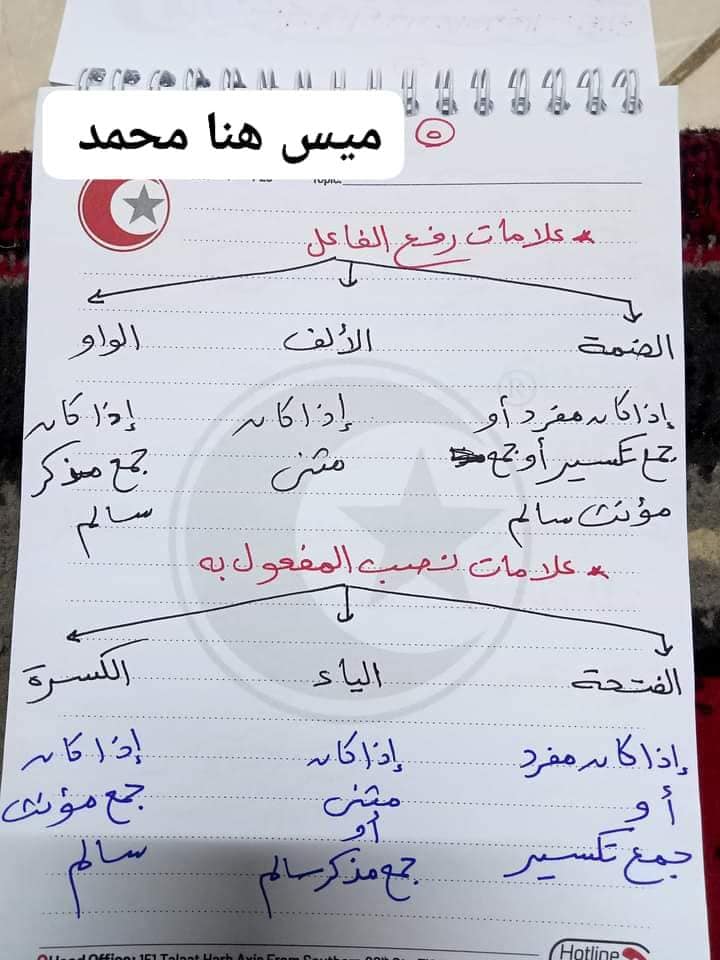 ميس هنا محمد
٥
* علامات رفع الفاعل
الضمة الألف الواو
إذا كان مفرد أو إذا كان إذا كان
جمع تكسير أو جمع مثنى جمع مذكر
مؤنث سالم سالم
* علامات نصب المفعول به
الفتحة الياء الكسرة
إذا كان مفرد إذا كان إذا كان
أو مثنى جمع مؤنث
أو
جمع تكسير جمع مذكر سالم سالم
Hotline